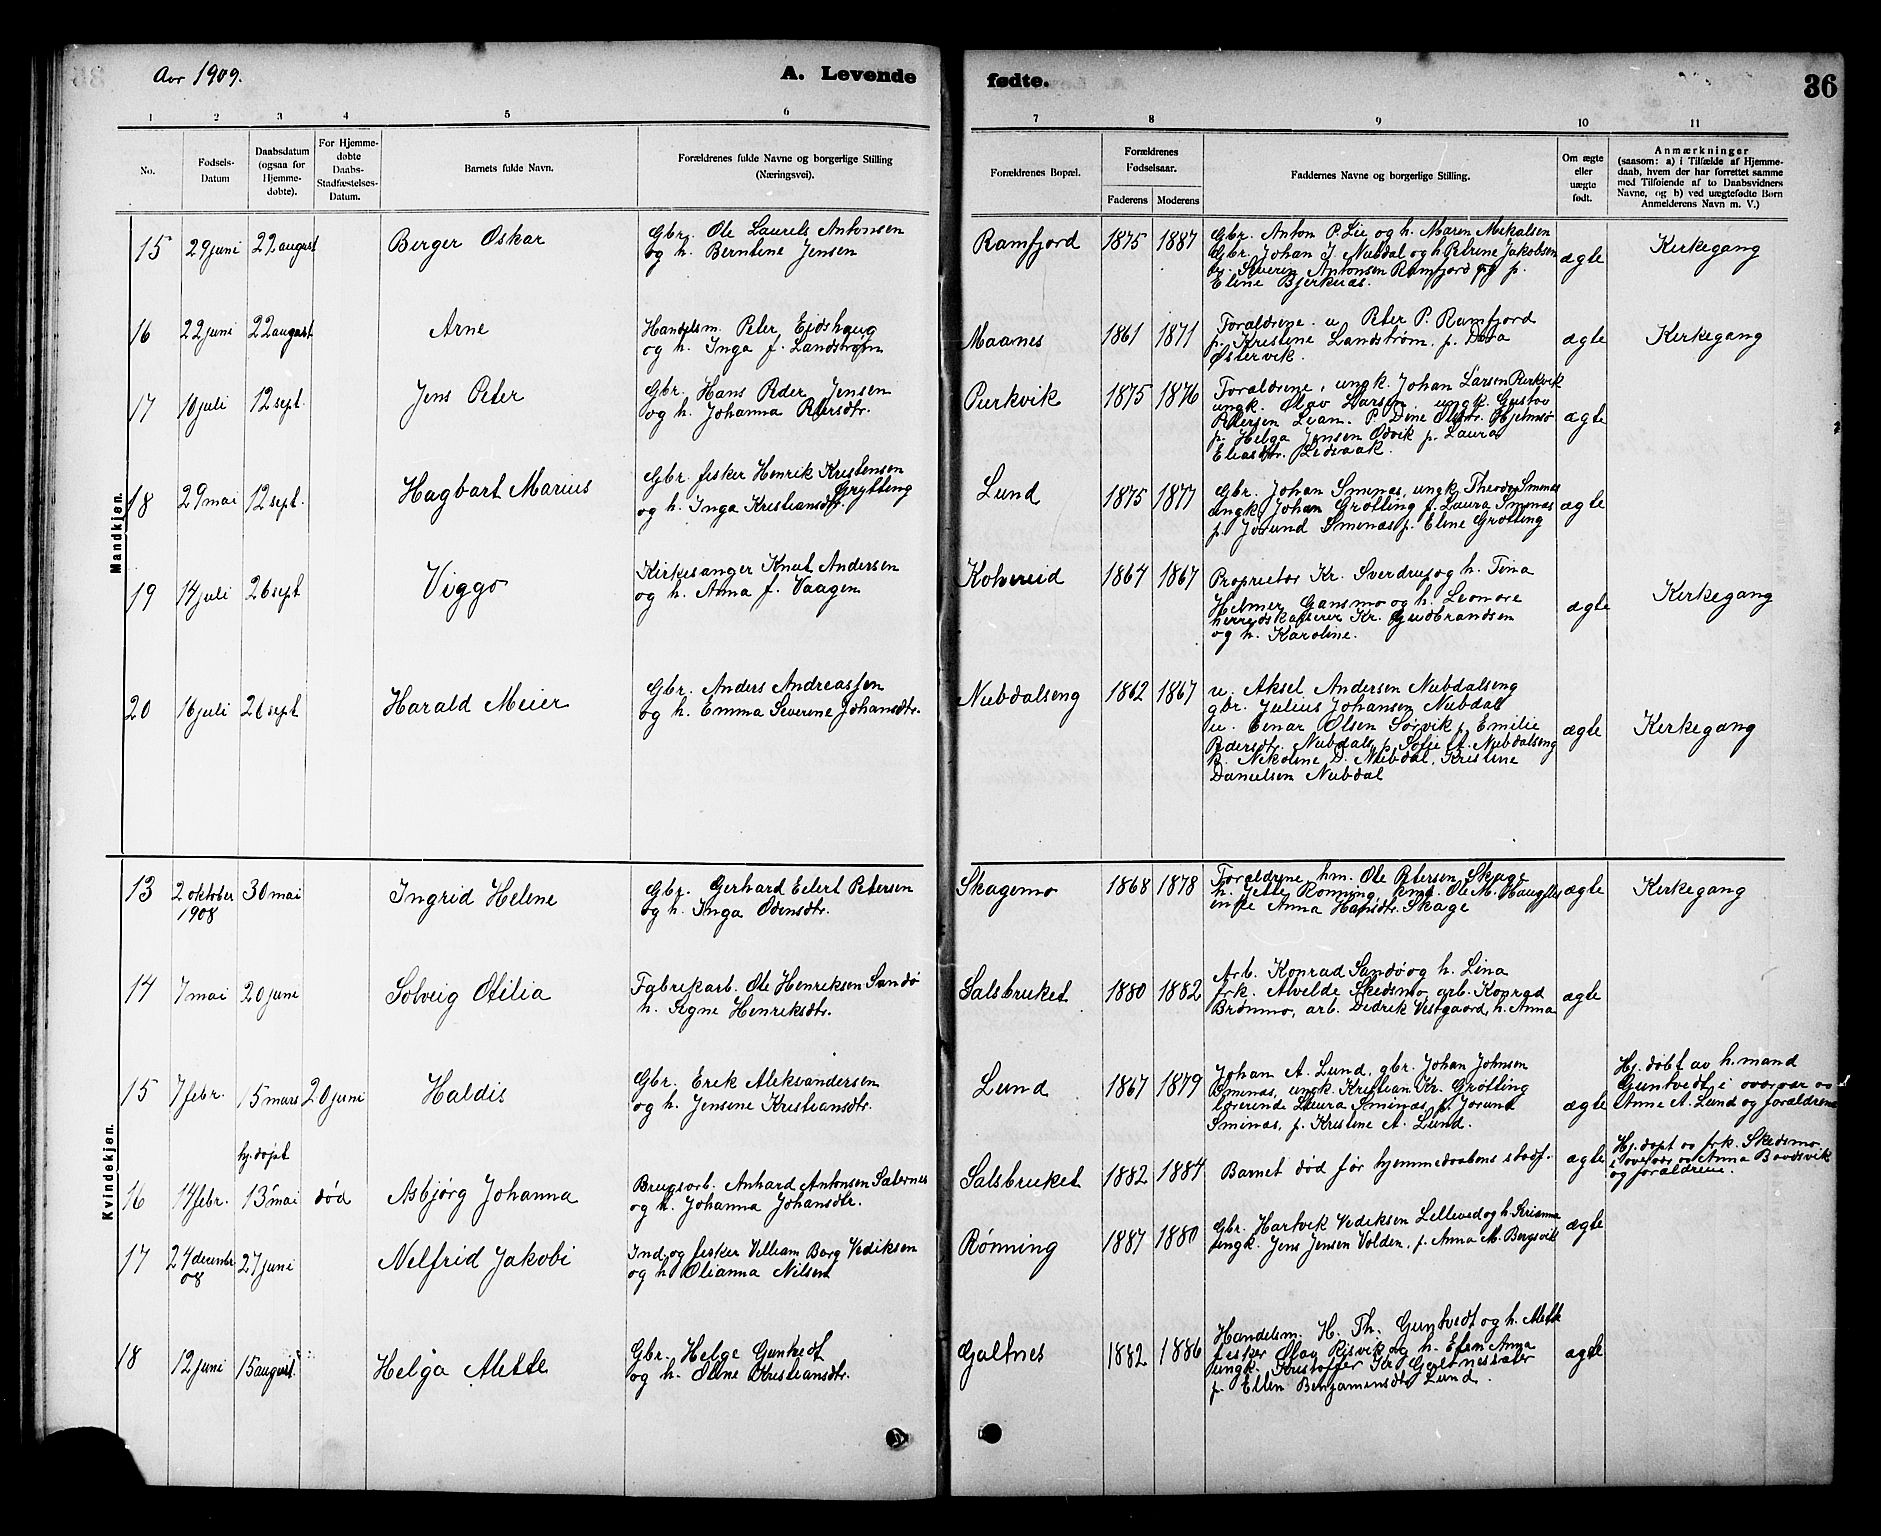 Aar 1909.
A. Levende
fødte.
36
1
2
3
4
5
6
7
8
9
10
11
No.
Fødsels-
Datum
Daabsdatum
(ogsaa for
Hjemme-
døbte).
For Hjemme-
døbte
Daabs-
Stadfæstelses-
Datum.
Barnets fulde Navn.
Forældrenes fulde Navne og borgerlige Stilling
(Næringsvei).
Forældrenes Bopæl.
Forældrenes
Fødselsaar.
Faderens
Moderens
Faddernes Navne og borgerlige Stilling.
Om ægte
eller
uægte
født.
Anmærkninger
(saasom: a) i Tilfælde af Hjemme-
daab, hvem der har forrettet samme
med Tilføiende af to Daabsvidners
Navne, og b) ved uægtefødte Børn
Anmelderens Navn m. V.)
Mandkjøn.
15 29 juni 22 august Berger Oskar
Gbr. Ole Laurels Antonsen
og h. Berntine Jensen
Ramfjord 1875 1887
Gbr. Anton P. Lie og h. Maren Mikalsen
Gbr. Johan J. Nubdal og h. Petrine Jakobsen
Severin Antonsen Ramfjord og p.
Eline Bjerknæs.
ægte Kirkegang
16 22 juni 22 august Arne
Handelsm. Peter Eidshaug
og h. Inga f. Landstrøm
Maanes 1861 1871
Forældrene. u. Peter P. Ramfjord
p. Kristine Landstrøm, p. Dora
Østervik.
ægte Kirkegang
17 10 juli 12 sept. Jens Peter
Gbr. Hans Peder Jensen
og h. Johanna Petersdtr.
Purkvik 1875 1876
Forældrene, ungk. Johan Larsen Purkvik
ungk. Olav Larsen ungk. Gustav
Petersen Lian. P. Dine Olsdtr. Hjelmsø
p. Helga Jensen Odvik p. Laura
Eliasdtr. Ledsaak.
ægte
18 29 mai 12 sept. Hagbart Marius
Gbr. fisker Henrik Kristensen
Grytting
og h. Inga Kristiansdtr.
Lund 1875 1877
Gbr. Johan Smines, ungk. Theodor Smines
ungk. Johan Grøtting p. Laura Sminæs
p. Jorund Smenæs p. Eline Grøtting
ægte
19 14 juli 26 sept Viggo
Kirkesanger Knut Andersen
og h. Anna f. Vaagen
Kolvereid 1864 1867
Proprietær Kr. Sverdrup og h. Tina
Helmer Gansmo og h. Leonore
herredskasserer Kr. Gudbrandsen
og h. Karoline.
ægte Kirkegang
20 16 juli 26 sept Harald Meier
Gbr. Anders Andreassen
og h. Emma Severine Johansdtr.
Nubdalseng 1862 1867
u. Aksel Andersen Nubdalseng
gbr. Julius Johansen Nubdal
u. Einar Olsen Sørvik p. Emilie
Pedersdtr. Nubdal, p. Sofie A. Nubdalseng
p. Nikoline D. Nubdal, Kristine
Danielsen Nubdal
ægte Kirkegang
Kvindekjøn.
13 2 oktober 30 mai Ingrid Helene
1908
Gbr. Gerhard Eilert Petersen
og h. Inga Odensdtr.
Skagemo 1868 1878
Forældrene, hm. Ole Petersen Skage
h. Jette Rønning, kmd. Ole M. Haugfles
enke Anna Hansdtr. Skage
ægte Kirkegang
14 7 mai 20 juni Solveig Otilia
Fabrikarb. Ole Henriksen Sandø
h. Signe Henriksdtr.
Salsbruket 1880 1882
Arb. Konrad Sandø og h. Lina
frk. Alvilde Skedsmo, arb. Konrad
Brønmo, arb. Didrik Vestgaard, h. Anna
ægte
15 7 febr. 15 mars 20 juni Haldis
Gbr. Erik Aleksandersen
og h. Jensine Kristiansdtr.
Lund 1867 1879
Johan A. Lund, gbr. Johan Johnsen
Smines, ungk. Kristian Kr. Grøtting
lærerinde Laura Sminæs, p. Jorund
Sminæs, p. Kristine A. Lund.
ægte
Hj. døbt av h. mand
Guntvedt i overvær av
Anne A. Lund og forældrene
hj. døpt
16 14 febr. 13 mai død Asbjørg Johanna
Brugsarb. Anhard Antonsen Salernes
og h. Johanna Johansdtr.
Salsbruket 1882 1884
Barnet død før hjemmedaabens stadf.
ægte
Hj. døpt av frk. Skedsmo
i overvær av Anna Baadsvik
og forældrene.
17 24 decembr 27 juni Nelfrid Jakobi
08
Ind. og fisker Villiam Borg Vediksen
og h. Olianna Nilsen
Rønning 1887 1880
Gbr. Hartvik Vediksen Lilleved og h. Krianna
ungk. Jens Jensen Volden, p. Anna M. Bergsvik
ægte
18 12 juni 15 august Helga Alette
Gbr. Helge Guntvedt
og h. Oline Kristiansdtr.
Galtnes 1882 1886
Handelsm. H. Th. Guntvedt og h. Alette
fisker Olav Risvik og h. Efem Anna
ungk. Kristoffer Kr. Galtnessæter
p. Ellen Benjaminsdtr. Lund.
ægte